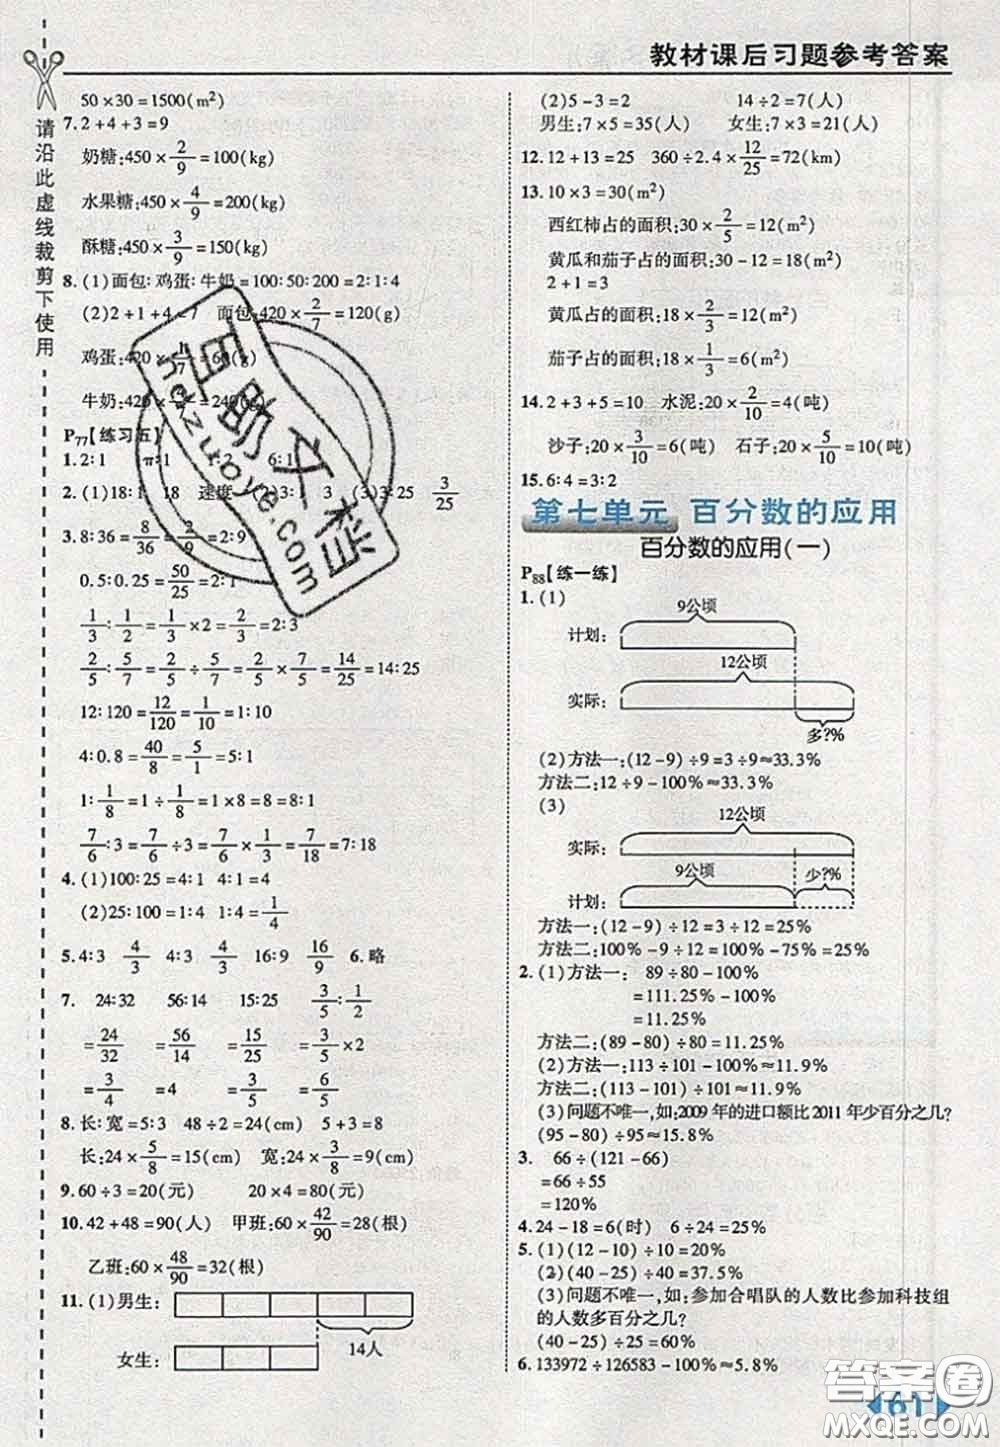 教材课后习题参考答案
请沿此虚线裁剪下使用
50×30=1500(m²)
7.2+4+3=9
奶糖:450×2/9=100(kg)
水果糖:450×4/9=200(kg)
酥糖:450×3/9=150(kg)
8.(1)面包:鸡蛋:牛奶=100:50:200=2:1:4
(2)2+1+4=7 面包:420×2/7=120(g)
鸡蛋:420×1/7=60(g)
牛奶:420×4/7=240(g)
P77【练习五】
1.2:1 π:1 1:2 6:1
2.(1)18:1 18 速度 (2)3:1 3 (3)3:25 3/25
3.8:36=8/36=2/9=2:9
0.5:0.25=50/25=2:1
1/3:1/2=1/3×2=2/3=2:3
2/5:5/7=2/5÷5/7=2/5×7/5=14/25=14:25
12:120=12/120=1/10=1:10
4:0.8=40/8=5/1=5:1
1:1/8=1÷1/8=1×8=8=8:1
7/6:3=7/6÷3=7/6×1/3=7/18=7:18
4.(1)100:25=4:1 4:1=4
(2)25:100=1:4 1:4=1/4
5.4:3 4/3 4:3 4/3 16:9 16/9 6.略
7. 24:32 56:14 15:25 3/5:1/2
=24/32 =56/14 =15/25 =3/5×2
=3/4 =4 =3/5 =6/5
8.长:宽=5:3 48÷2=24(cm) 5+3=8
长:24×5/8=15(cm) 宽:24×3/8=9(cm)
9.60÷3=20(元) 20×4=80(元)
10.42+48=90(人) 甲班:60×42/90=28(根)
乙班:60×48/90=32(根)
11.(1)男生:
女生: 14人
(2)5-3=2 14÷2=7(人)
男生:7×5=35(人) 女生:7×3=21(人)
12.12+13=25 360÷2.4×12/25=72(km)
13.10×3=30(m²)
西红柿占的面积:30×2/5=12(m²)
黄瓜和茄子占的面积:30-12=18(m²)
2+1=3
黄瓜占的面积:18×2/3=12(m²)
茄子占的面积:18×1/3=6(m²)
14.2+3+5=10 水泥:20×2/10=4(吨)
沙子:20×3/10=6(吨) 石子:20×5/10=10(吨)
15.6:4=3:2
第七单元 百分数的应用
百分数的应用(一)
P88【练一练】
1.(1)
9公顷
计划:
12公顷
实际:
多?%
(2)方法一:(12-9)÷9=3÷9≈33.3%
方法二:12÷9-100%≈33.3%
(3)
12公顷
实际:
9公顷 少?%
计划:
方法一:(12-9)÷12=3÷12=25%
方法二:100%-9÷12=100%-75%=25%
2.(1)方法一: 89÷80-100%
=111.25%-100%
=11.25%
方法二:(89-80)÷80=11.25%
(2)方法一:113÷101-100%≈11.9%
方法二:(113-101)÷101≈11.9%
(3)问题不唯一,如:2009年的进口额比2011年少百分之几?
(95-80)÷95≈15.8%
3. 66÷(121-66)
=66÷55
=120%
4.24-18=6(时) 6÷24=25%
5.(1)(12-10)÷10=20%
(2)(40-25)÷40=37.5%
(3)问题不唯一,如:参加合唱队的人数比参加科技组
的人数多百分之几?
(40-25)÷25=60%
6.133972÷126583-100%≈5.8%
61
互助文档
hekzuoye.com
答案圈
MXQE.COM